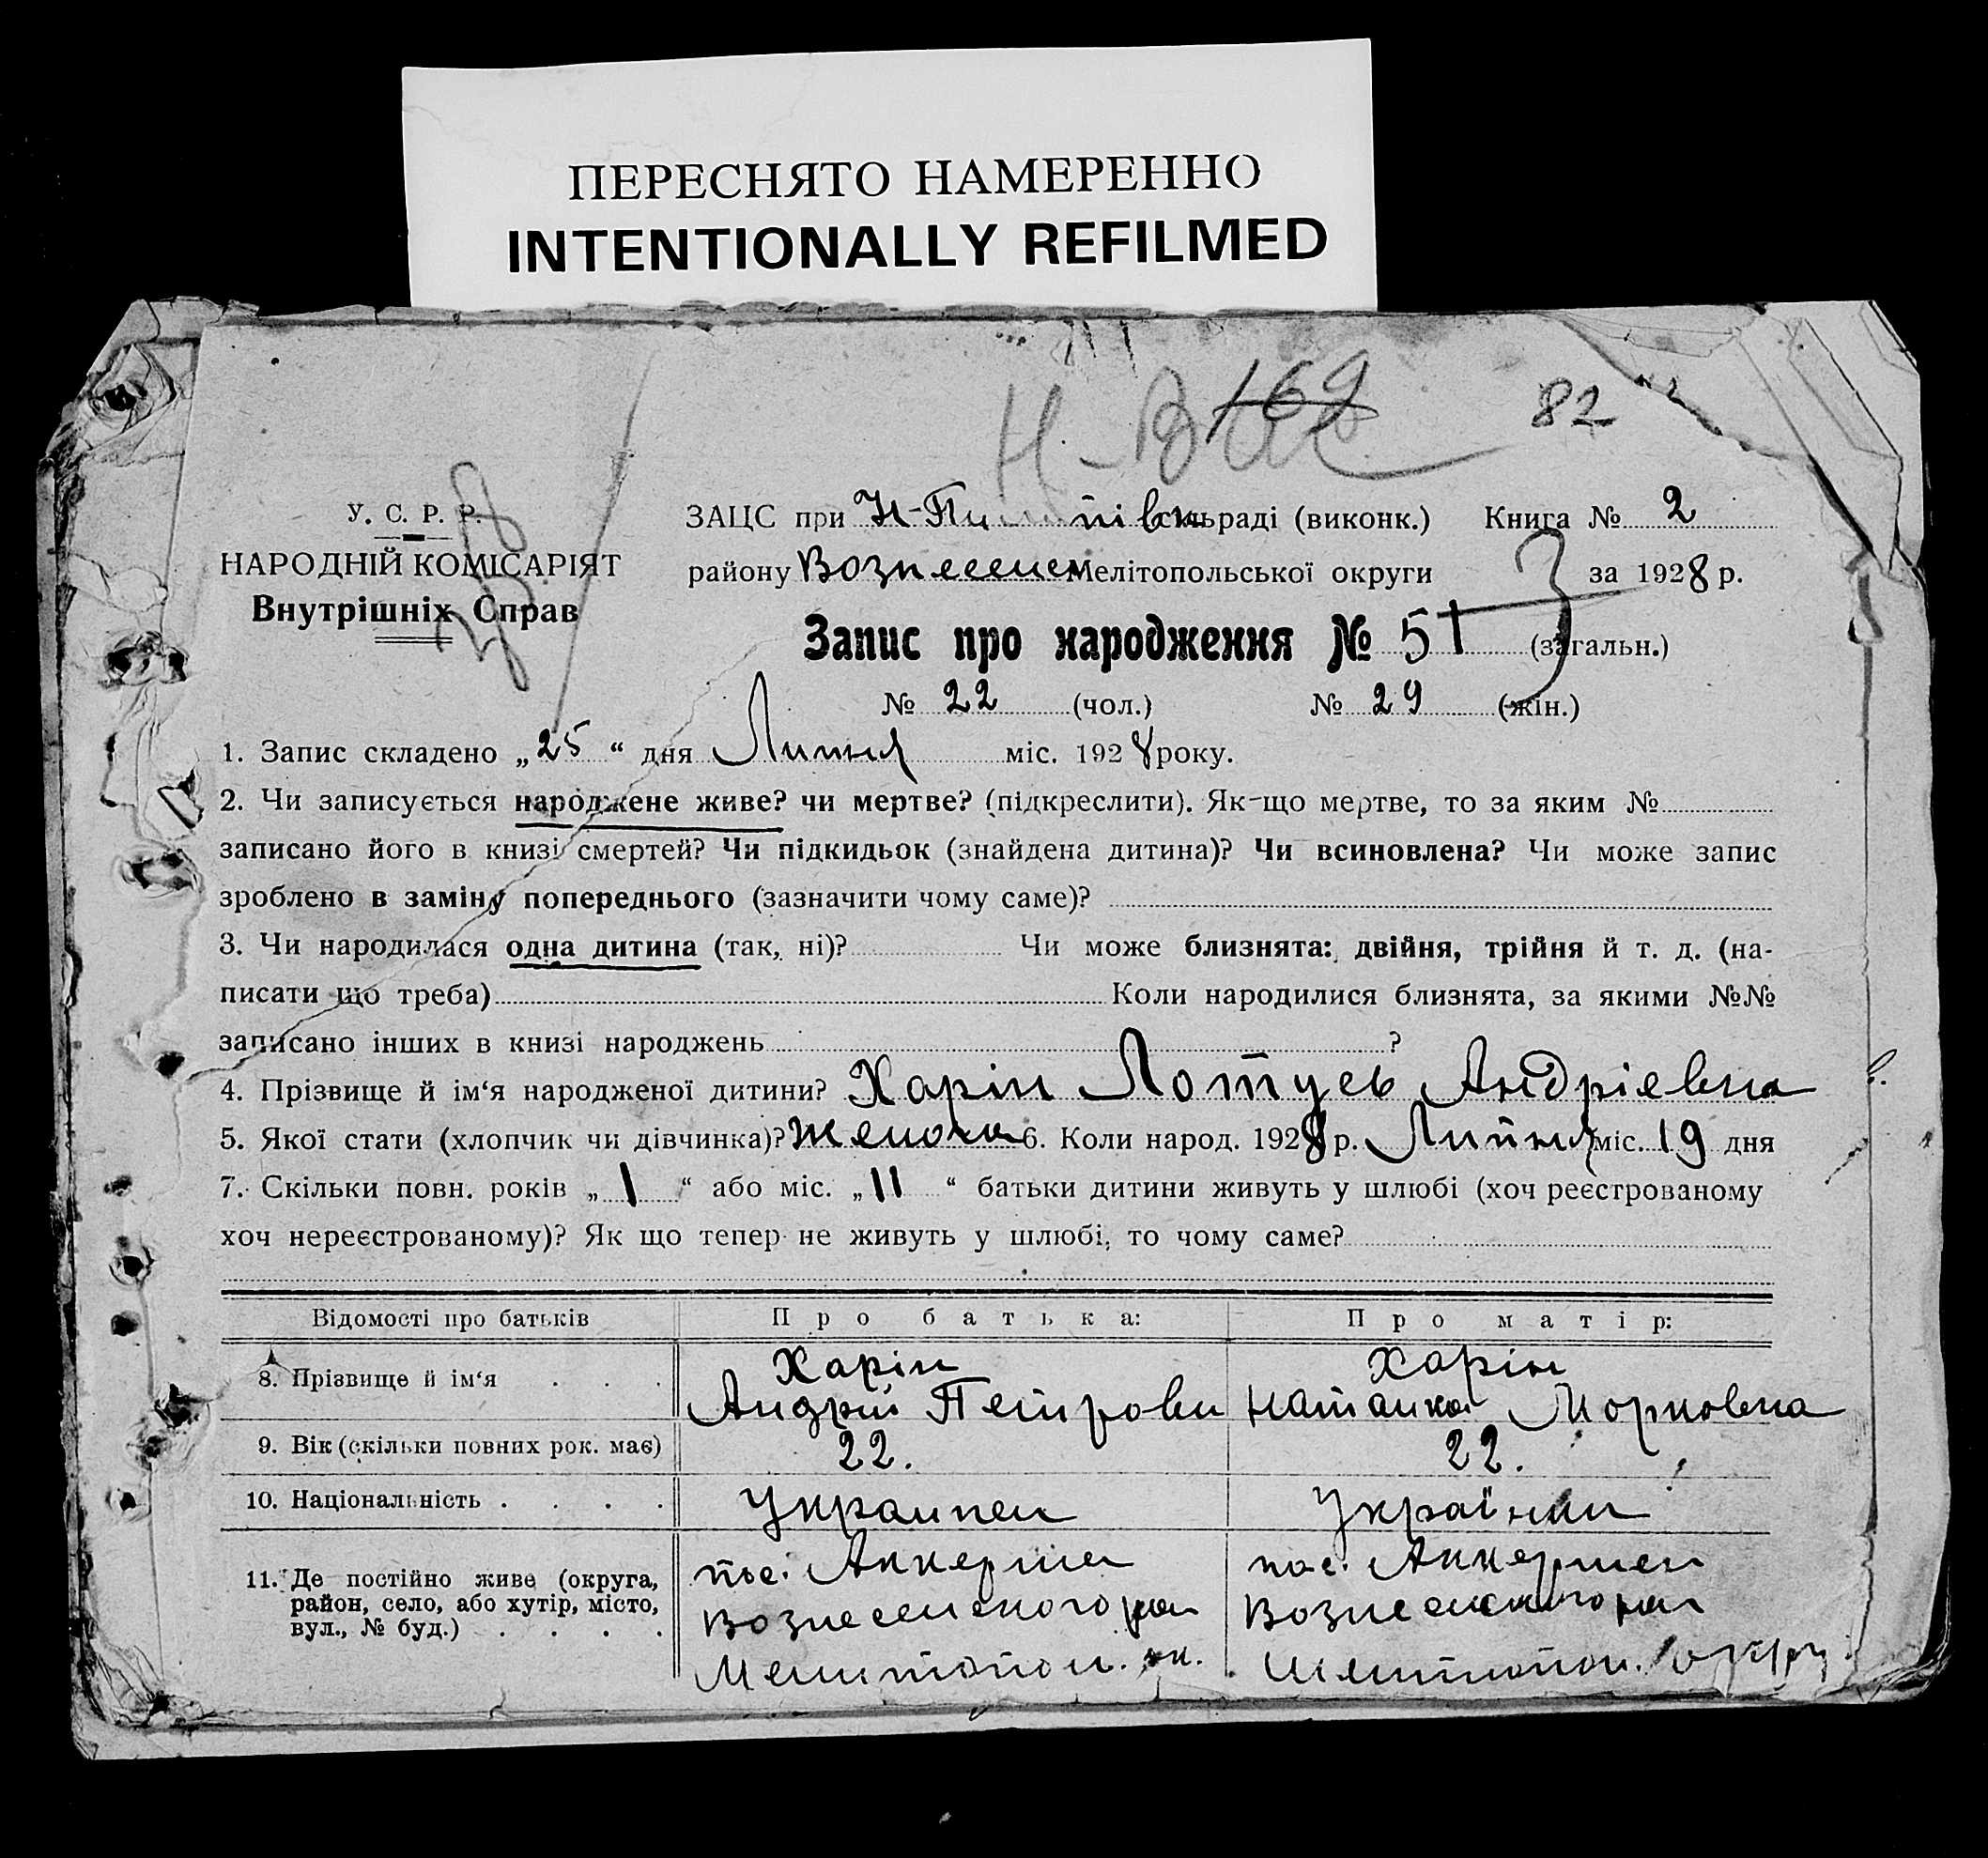 ПЕРЕСНЯТО НАМЕРЕННО
INTENTIONALLY REFILMED
169
82
У. С. Р. Р.
НАРОДНІЙ КОМІСАРІЯТ
Внутрішніх Справ
ЗАЦС при сільраді (виконк.) Книга № 2
району Вознесенськ Мелітопольської округи за 1928 р.
Запис про народження № 51 (загальн.)
№ 22 (чол.) № 29 (жін.)
1. Запис складено „25“ дня Липня міс. 1928 року.
2. Чи записується народжене живе? чи мертве? (підкреслити). Як-що мертве, то за яким №
записано його в книзі смертей? Чи підкидьок (знайдена дитина)? Чи всиновлена? Чи може запис
зроблено в заміну попереднього (зазначити чому саме)?
3. Чи народилася одна дитина (так, ні)? Чи може близнята: двійня, трійня й т. д. (на-
писати що треба) Коли народилися близнята, за якими №№
записано інших в книзі народжень ?
4. Прізвище й ім‘я народженої дитини? Харін Андріевна
5. Якої стати (хлопчик чи дівчинка)? 6. Коли народ. 1928 р. Липня міс. 19 дня
7. Скільки повн. років „1“ або міс. „11“ батьки дитини живуть у шлюбі (хоч реєстрованому
хоч нереєстрованому)? Як що тепер не живуть у шлюбі, то чому саме?
Відомості про батьків Про батька: Про матір:
8. Прізвище й ім‘я Харін Харін
Андрій Петрови Наталка Морковна
9. Вік (скільки повних рок. має) 22. 22.
10. Національність Українец Українки
11. Де постійно живе (округа, пос. Аккермен пос. Аккермен
район, село, або хутір, місто, Вознесенского рай Вознесенского рай
вул., № буд.) Мелитопол. ок. Мелитопол. окру